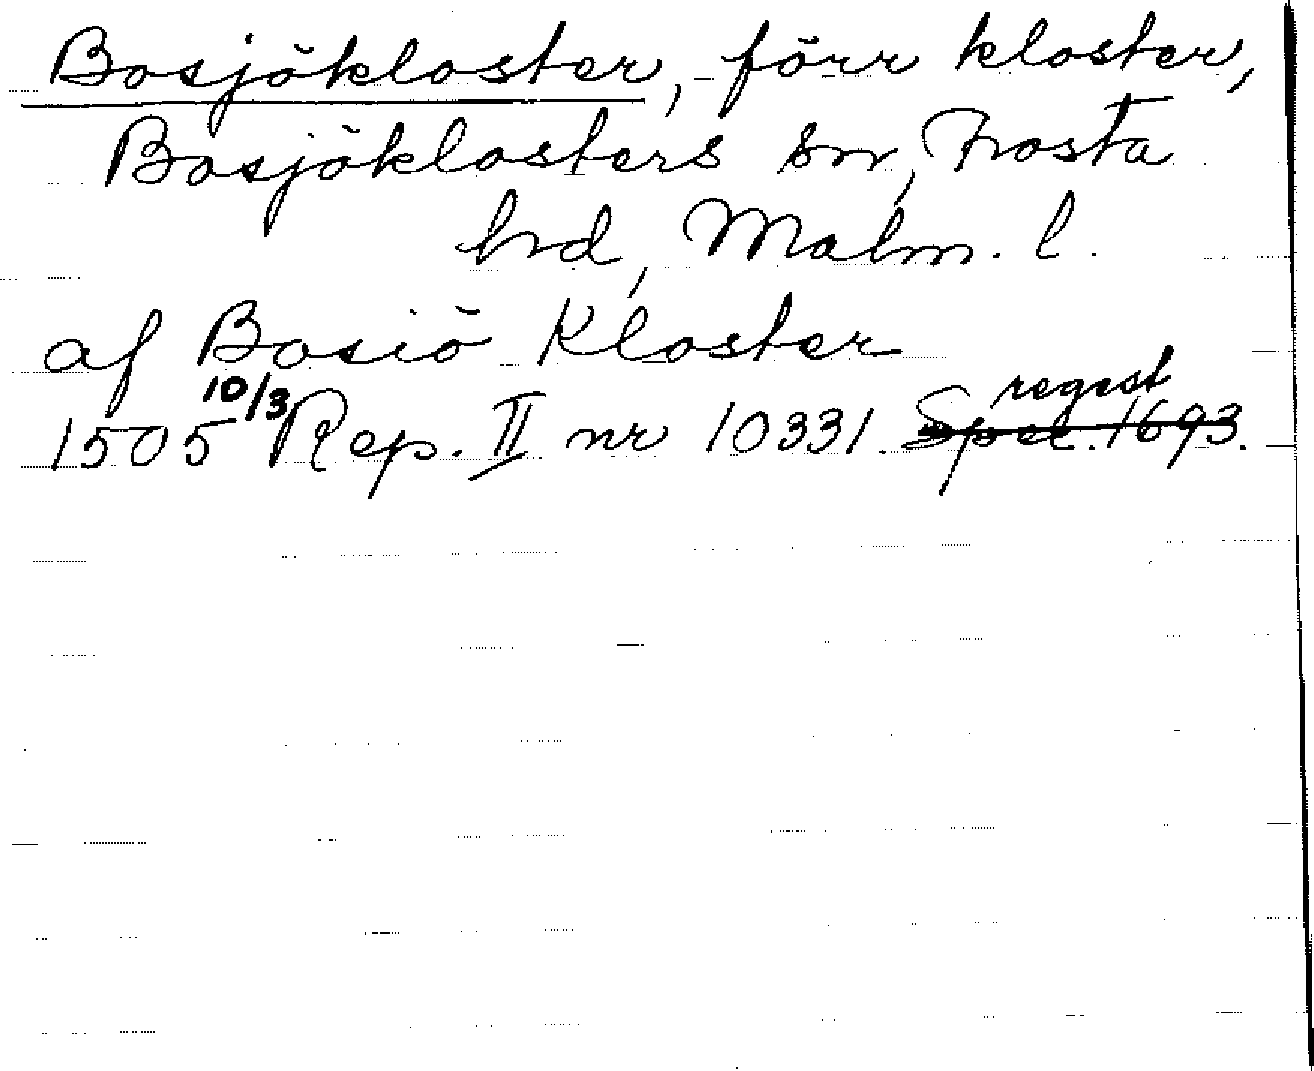 Bosjökloster, förr kloster,
Bosjöklosters sn, Frosta
hd, Malm. l.
af Bosiö Kloster
1505 10/3 Rep. II nr 10331. Spec. 1693. regest